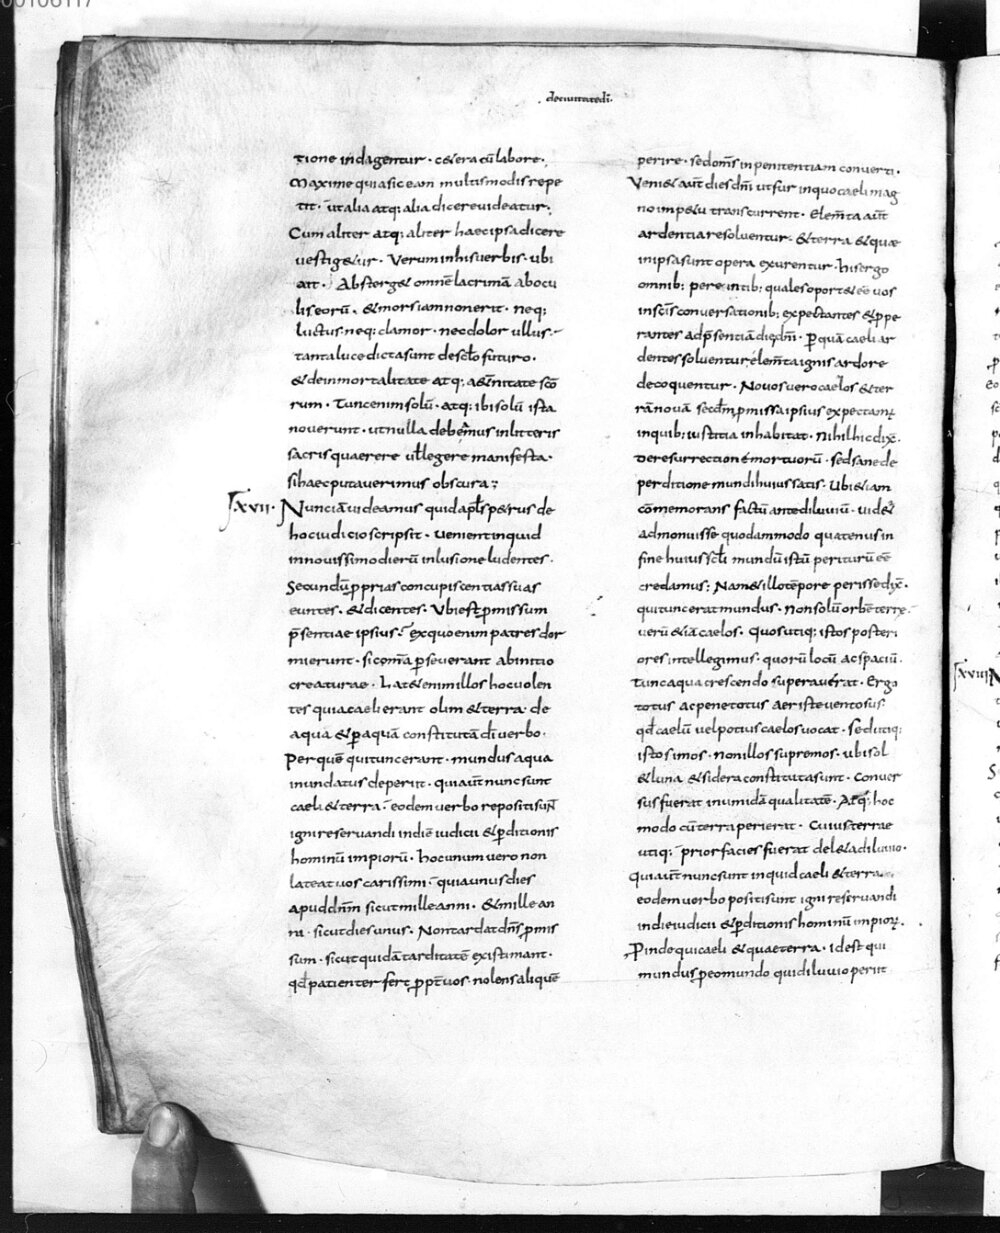 de ciuitate dī.
tione indagentur. cetera cū labore.
Maxime quia sic eam multis modis repe
tit. ut alia atq; alia dicere uideatur.
Cum aliter atq; aliter haec ipsa dicere
uestigetur. Verum in his uerbis. ubi
ait. Absterget omnē lacrimā ab ocu
lis eorū. et mors iam non erit. neq;
luctus. neq; clamor. nec dolor ullus.
tanta luce dicta sunt de sc̄lo futuro.
et de inmortalitate atq; aet̄nitate sc̄o
rum. Tunc enim solū. atq; ibi solū ista
non erunt. ut nulla debemus in litteris
sacris quaerere uel legere manifesta.
si haec putauerimus obscura;
XVII. Nunc iā uideamus quid apl̄s petrus de
hoc iudicio scripsit. Venient inquid
in nouissimo dierū inlusione ludentes.
Secundū proprias concupiscentias suas
euntes. et dicentes. Vbi est promissum
p̄sentiae ipsius? ex quo enim patres dor
mierunt. sic om̄a perseuerant ab initio
creaturae. Latet enim illos hoc uolen
tes quia caeli erant olim et terra. de
aqua et per aquā constituta di uerbo.
Per quē qui tunc erant. mundus aqua
inundatus deperiit. qui aūt nunc sunt
caeli et terra. eodem uerbo repositi sunt
igni reseruandi in diē iudicii et perditionis
hominū impiorū. hoc unum uero non
lateat uos carissimi. quia unus dies
apud dn̄m sicut mille anni. et mille an
ni. sicut dies unus. Non tardat dn̄s promis
sum. sicut quidā tarditatē existimant.
qd̄ patienter fert propt̄ uos. nolens aliquē
perire. sed om̄s in penitentiam conuerti.
Veniet aūt dies dn̄i ut fur in quo caeli mag
no impetu transcurrent. Elem̄ta aūt
ardentia resoluentur. et terra et quae
in ipsa sunt opera exurentur. his ergo
omnib; pereuntib; quales oportet ēē uos
in sc̄is conuersationib; expectantes et prope
rantes ad p̄sentiā diei dn̄i. per quā caeli ar
dentes soluentur. elem̄ta ignis ardore
decoquentur. Nouos uero caelos et ter
rā nouā secdm promissa ipsius expectam;
in quib; iustitia inhabitat. Nihil hic dix̄.
De resurrectione mortuorū. sed sane de
perditione mundi huius satis. Vbi etiam
cōmemorans factū ante diluuiū. uidet̄
admonuisse quodammodo quatenus in
fine huius sc̄li mundū istū periturū ēē
credamus; Nam et illo tēpore perisse dix̄.
qui tunc erat mundus. non solū orbē terre.
uerū etiā caelos. Quos utiq; istos posteri
ores intellegimus. quorū locū ac spaciū.
tunc aqua crescendo superauerat. Ergo
totus ac pene totus aer iste uentosus.
qd̄ caelū uel potius caelos uocat. sed utiq;
istos imos. non illos supremos. ubi sol
et luna et sidera constituta sunt. Conuer
sus fuerat in umidā qualitatē. Atq; hoc
modo cū terra perierat. Cuius terrae
utiq; prior facies fuerat deleta diluuio.
qui aūt nunc sunt inquid caeli et terra.
eodem uerbo positi sunt igni reseruandi
in die iudicii et perditionis hominū impior;.
Proinde qui caeli et quae terra. id est qui
mundus pro eo mundo qui diluuio periit
XVIII